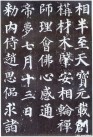 相半至天寶元載創
構材木肇安相輪禪
師理會佛心感通
帝夢七月十三日
勅內侍趙思侃求諸